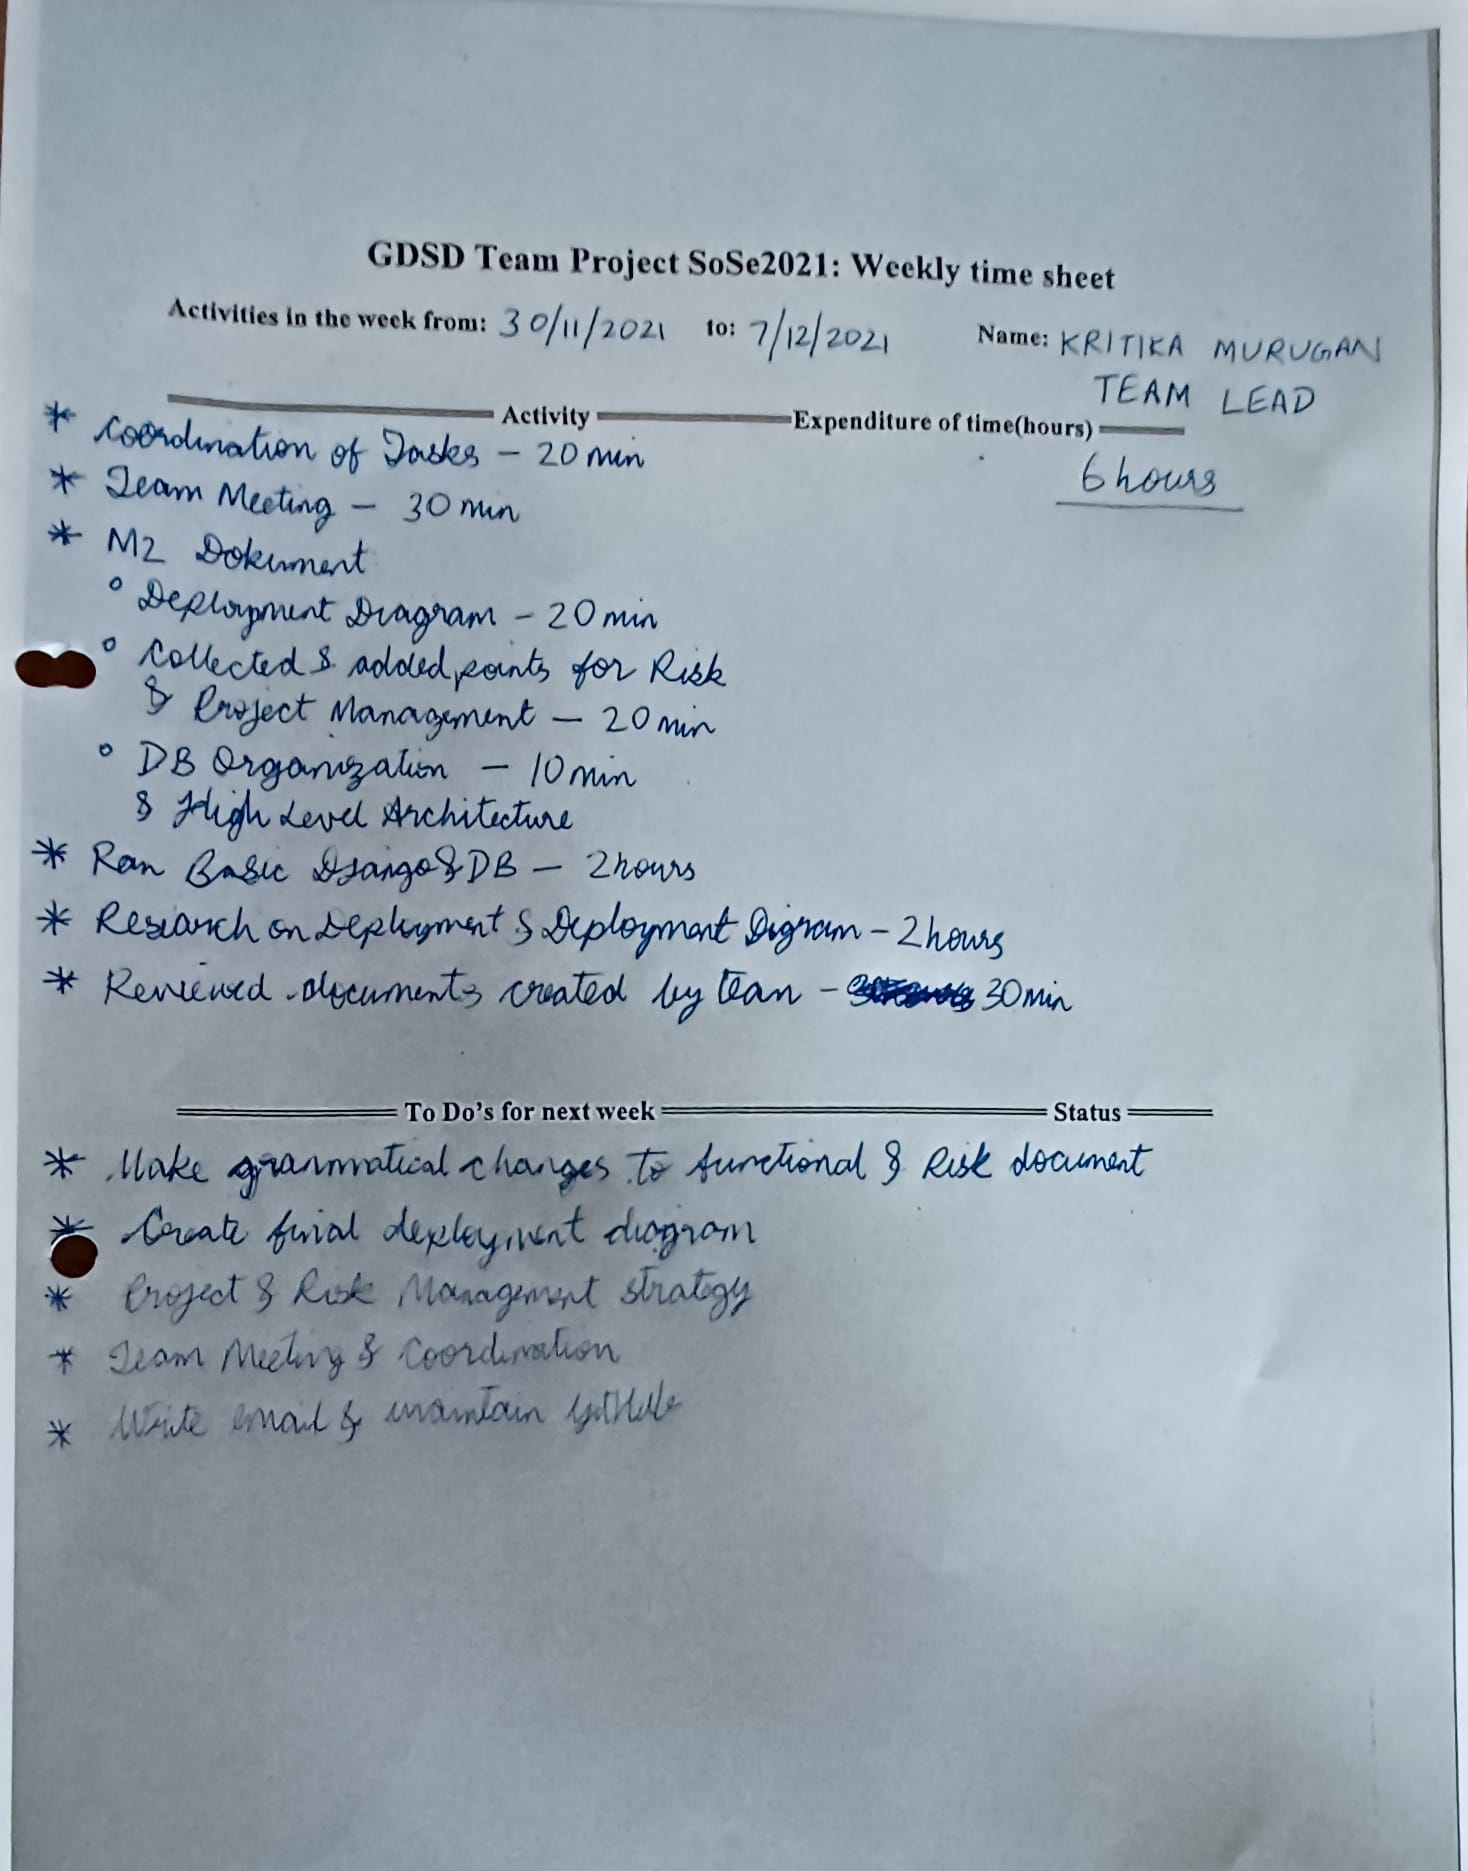 GDSD Team Project SoSe2021: Weekly time sheet
Activities in the week from: 30/11/2021 to: 7/12/2021 Name: KRITIKA MURUGAN
TEAM LEAD
Activity Expenditure of time(hours)
* Coordination of Tasks - 20 min
6 hours
* Team Meeting - 30 min
* M2 Dokument
° Deployment Diagram - 20 min
° Collected & added points for Risk
& Project Management - 20 min
° DB Organization - 10 min
& High Level Architecture
* Ran Basic Django & DB - 2 hours
* Research on Deployment & Deployment Digram - 2 hours
* Reviewed documents created by team - 30 min
To Do's for next week Status
* Make grammatical changes to functional & Risk document
* Create final deployment diagram
* Project & Risk Management strategy
* Team Meeting & Coordination
* Write email & maintain GitHub